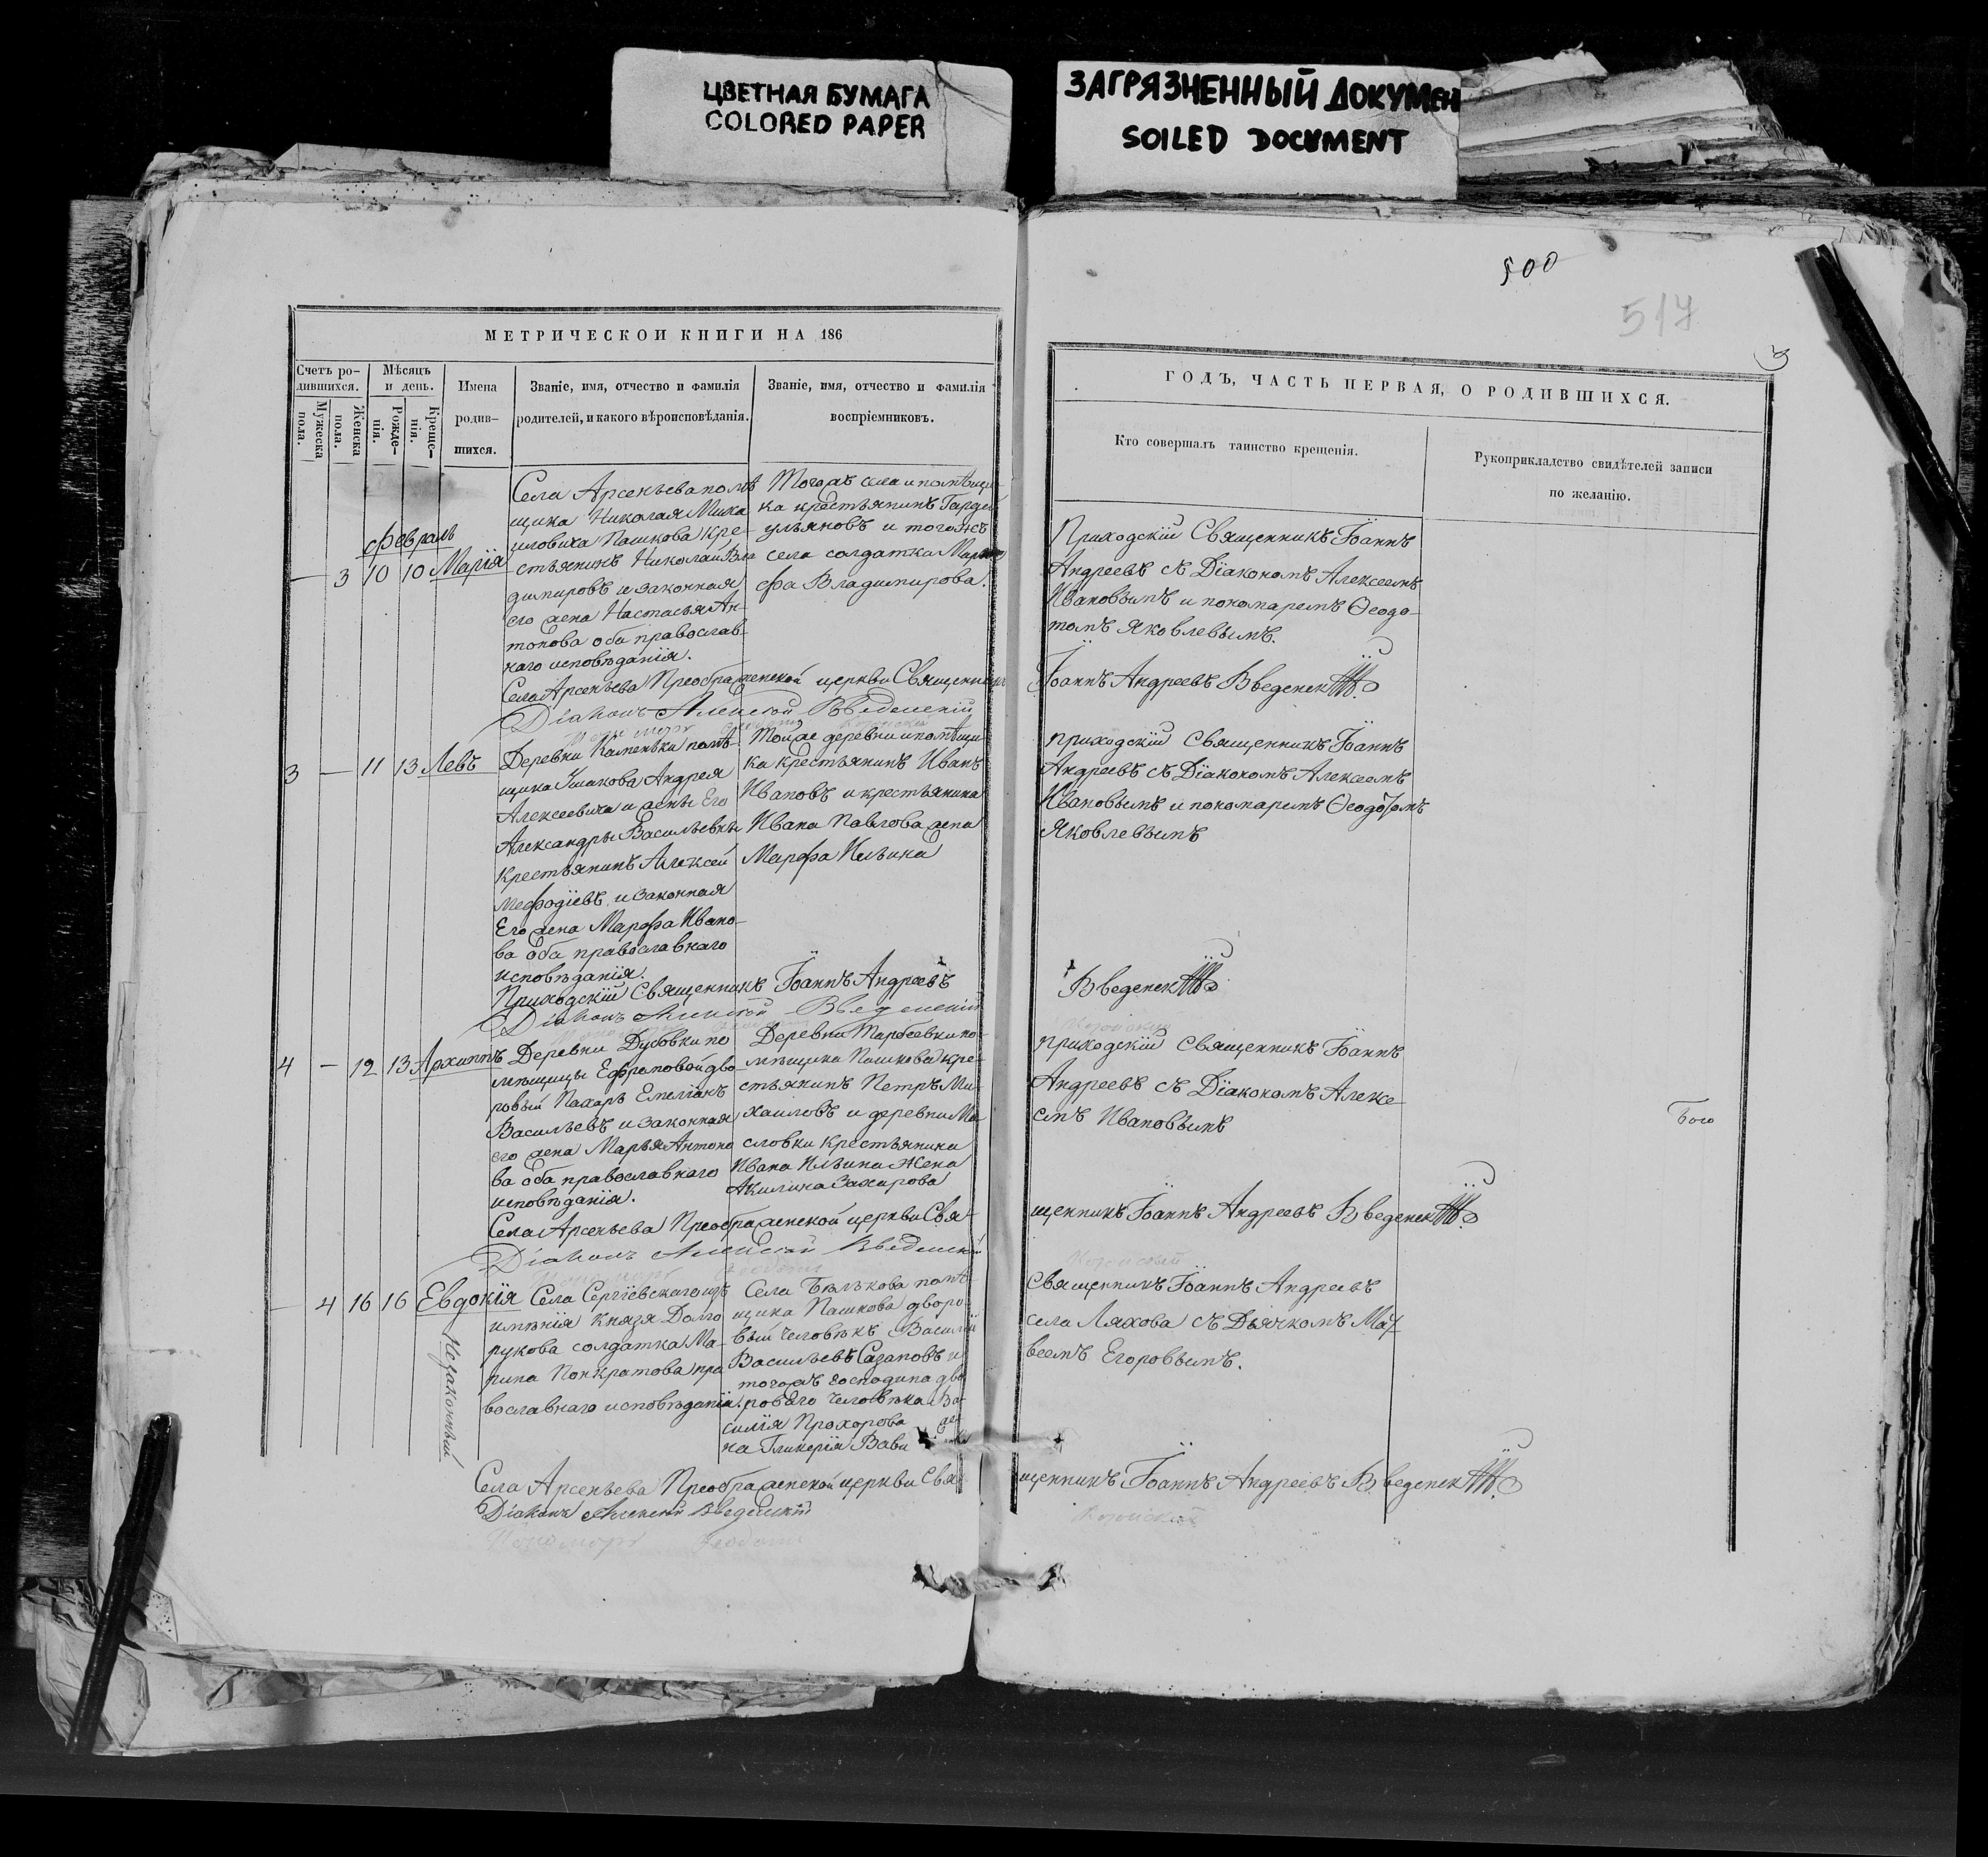 ЦВЕТНАЯ БУМАГА
COLORED PAPER
ЗАГРЯЗНЕННЫЙ ДОКУМЕН
SOILED DOCUMENT
500
517
МЕТРИЧЕСКОЙ КНИГИ НА 186
Счетъ ро-
дившихся.
Мѣсяцъ
и день.
Мужеска
пола.
Женска
пола.
Рожде-
нія.
Креще-
нія.
Имена
родив-
шихся.
Званіе, имя, отчество и фамилія
родителей, и какого вѣроисповѣданія.
Званіе, имя, отчество и фамилія
воспріемниковъ.
Февраль
— 3 10 10 Марія
Села Арсеньева помѣ
щика Николая Миха
иловича Пашкова кре-
стьянинъ Николай Вла
димировъ и законная
его жена Настасья Ан-
тонова оба православ-
наго исповѣданія.
Тогожъ села и помѣщи
ка крестьянинъ Гордей
ульяновъ и тогожъ
села солдатка Мар
фа Владимирова.
Села Арсеньева Преображенской церкви Священникъ
Діаконъ Алексей Введенскій
3 — 11 13 Левъ
Деревни Каменьки помѣ-
щика Ушакова Андрея
Алексеевича и жены Его
Александры Васильевны
крестьянинъ Алексей
Мефодіевъ и законная
Его жена Марфа Ивано-
ва оба православнаго
исповѣданія.
Тойже деревни и помѣщи
ка крестьянинъ Иванъ
Ивановъ и крестьянина
Ивана Павлова жена
Марфа Ильина
Приходскій Священникъ Іоаннъ Андреевъ
Діаконъ Алексей Введенскій
4 — 12 13 Архиппъ
Деревни Дубовки по
мѣщицы Ефремовой дво
ровый Пахарь Емеліанъ
Васильевъ и законная
его жена Марья Антоно
ва оба православнаго
исповѣданія.
Деревни Тарбеевки по-
мѣщика Пашкова кре-
стьянинъ Петръ Ми-
хаиловъ и деревни Ма-
словки крестьянина
Ивана Ильина Жена
Акилина Захарова
Села Арсеньева Преображенской церкви Свя-
Діаконъ Алексей Введенскій
— 4 16 16 Евдокія
Незаконный
Села Сергіевскаго изъ
имѣнія князя Долго
рукова солдатка Ма-
рина Понкратова пра
вославнаго исповѣданія.
Села Бѣлькова помѣ-
щика Пашкова дворо-
вый человѣкъ Василій
Васильевъ Сазановъ и
тогожъ Господина дво
роваго человѣка Ва-
силія Прохорова же
на Гликерія Вави
Села Арсеньева Преображенской церкви Свя
Діаконъ Алексей Введенскій
Пономарь Ѳеодотъ
ГОДЪ, ЧАСТЬ ПЕРВАЯ, О РОДИВШИХСЯ.
Кто совершалъ таинство крещенія.
Рукоприкладство свидѣтелей записи
по желанію.
Приходскій Священникъ Іоаннъ
Андреевъ съ Діакономъ Алексеемъ
Ивановымъ и пономаремъ Ѳеодо-
томъ Яковлевымъ.
Іоаннъ Андреевъ Введенскій
приходскій Священникъ Іоаннъ
Андреевъ съ Діакономъ Алексеемъ
Ивановымъ и пономаремъ Ѳеодотомъ
Яковлевымъ
Введенскій
приходскій Священникъ Іоаннъ
Андреевъ съ Діакономъ Алексе-
емъ Ивановымъ
щенникъ Іоаннъ Андреевъ Введенскій
Священникъ Іоаннъ Андреевъ
села Ляхова съ Дьячкомъ Мат
веемъ Егоровымъ.
щенникъ Іоаннъ Андреевъ Введенскій